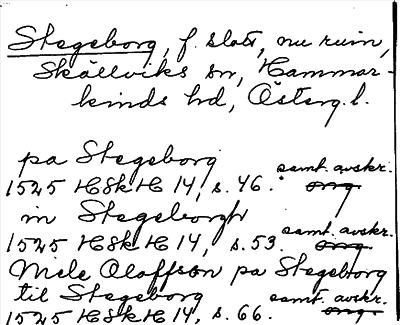 Stegeborg, f. slott, nu ruin,
Skällviks sn, Hammar-
kinds hd, Österg. l.
pa Stegeborg
samt. avskr.
1525 HSkH 14, s. 46. orig.
in Stegeborgh
samt. avskr.
1525 HSkH 14, s. 53. orig.
Mele Oloffson pa Stegeborg
til Stegeborg samt. avskr.
1525 HSkH 14, s. 66. orig.